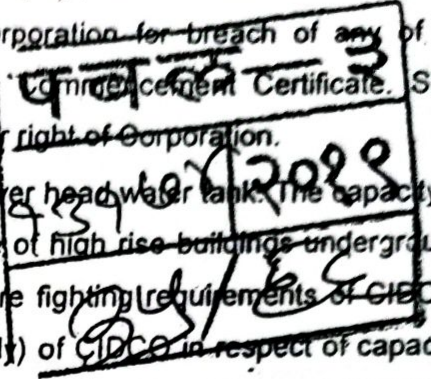 rporation for breach of any of
Commencement Certificate. S
r right of Corporation.
er head water tank. The capacity
of high rise buildings undergrou
re fighting requirements of CIDC
ly) of CIDCO in respect of capac
प व ल - ३
२०११